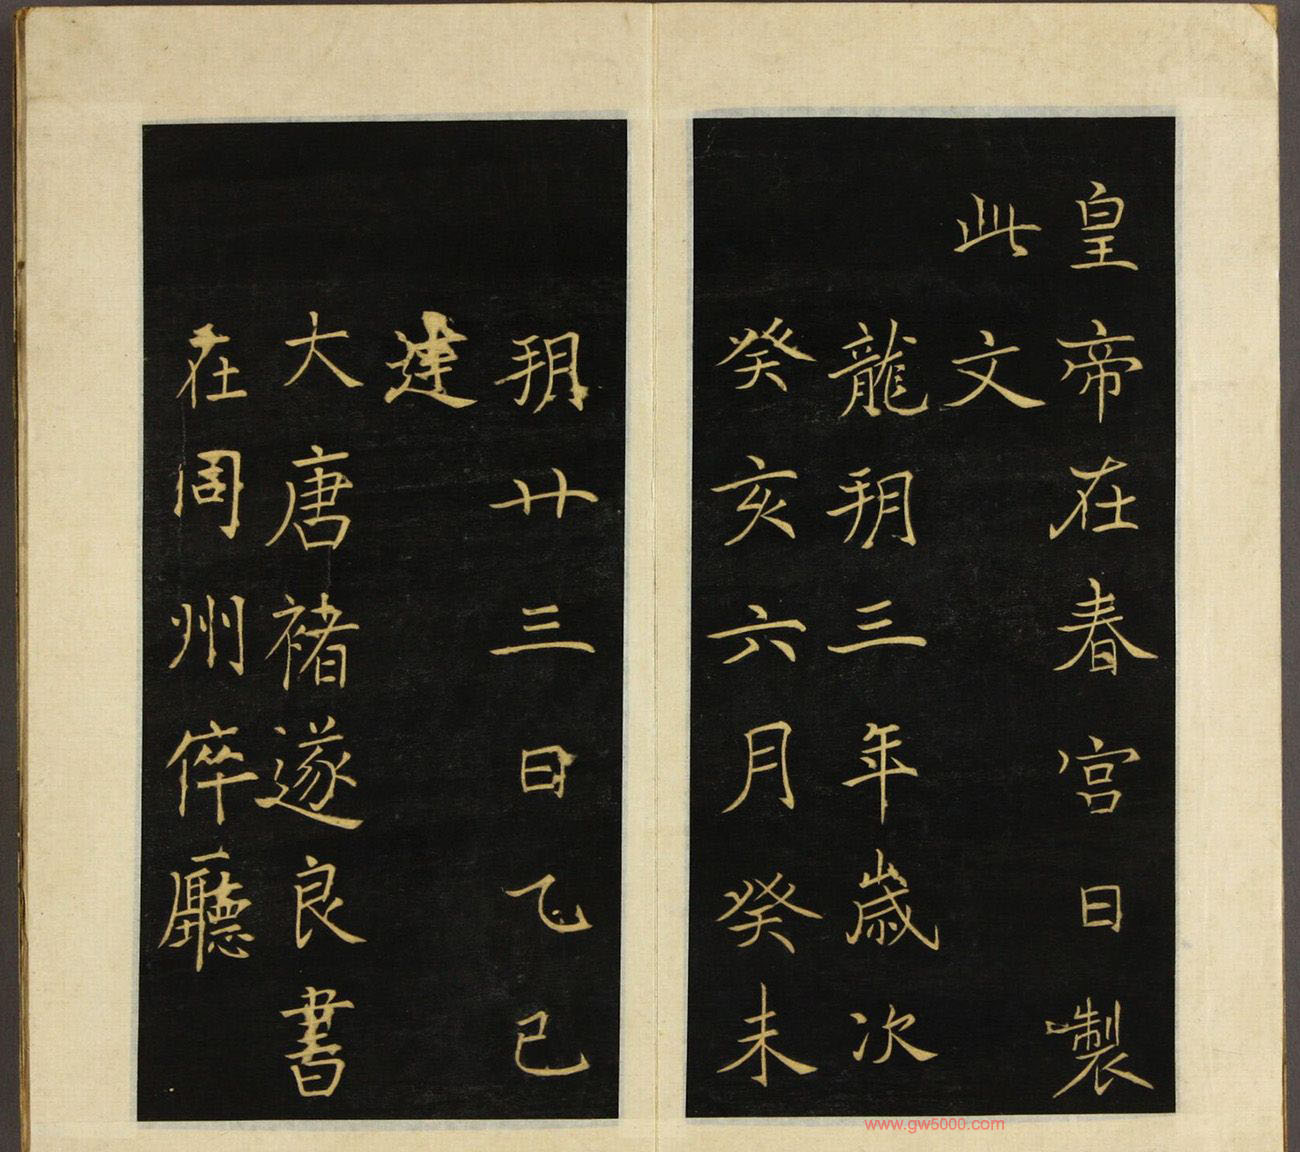 皇帝在春宮日製
此文
龍朔三年歲次
癸亥六月癸未
朔廿三日乙巳
建
大唐褚遂良書
在同州倅廳
www.gw5000.com